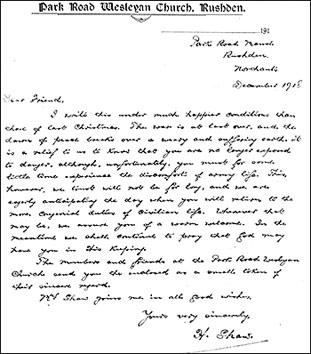 Park Road Wesleyan Church, Rushden.
191
Park Road Manse
Rushden,
Northants
December 1918
Dear Friend,
I write this under much happier conditions than
those of last Christmas. The war is at last over, and, the
dawn of peace breaks over a weary and suffering earth, it
is a relief to us to know that you are no longer exposed
to danger, although, unfortunately, you must for some
little time experience the discomforts of army life. This,
however, we trust will not be for long, and we are
eagerly anticipating the day when you will return to the
more congenial duties of civilian life. Whenever that
may be, we assure you of a warm welcome. In the
meantime we shall continue to pray that God may
have you in His keeping.
The members and friends at the Park Road Wesleyan
Church send you the enclosed as a small token of
their sincere regard.
Mrs Shaw joins me in all good wishes,
Yours very sincerely,
H. Shaw.